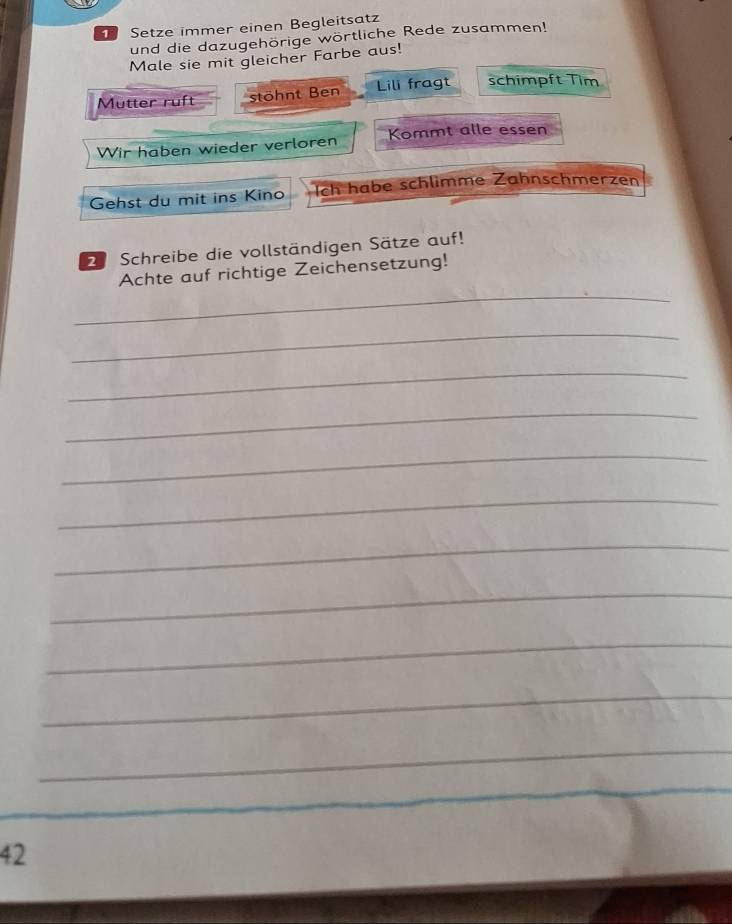 1 Setze immer einen Begleitsatz
und die dazugehörige wörtliche Rede zusammen!
Male sie mit gleicher Farbe aus!
Mutter ruft stöhnt Ben Lili fragt schimpft Tim
Wir haben wieder verloren Kommt alle essen
Gehst du mit ins Kino Ich habe schlimme Zahnschmerzen
2 Schreibe die vollständigen Sätze auf!
Achte auf richtige Zeichensetzung!
42